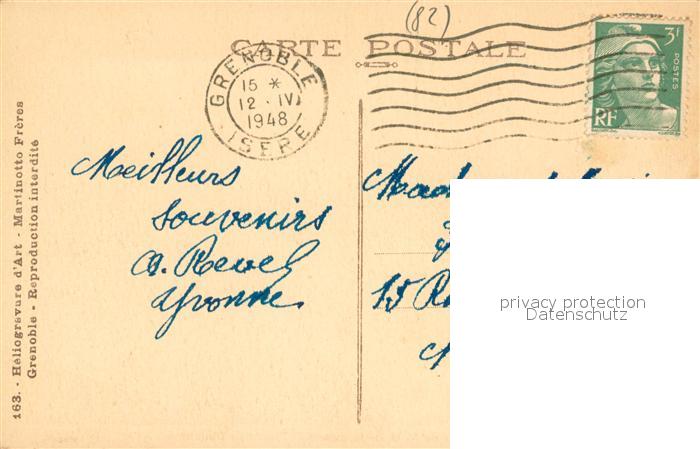 (82)
CARTE POSTALE
GRENOBLE
15 *
12 · IV
1948
ISERE
3F
POSTES
RF
163. - Héliogravure d'Art - Martinotto Frères
Grenoble - Reproduction interdite
Meilleurs
souvenirs
Yvonne
15 R
privacy protection
Datenschutz